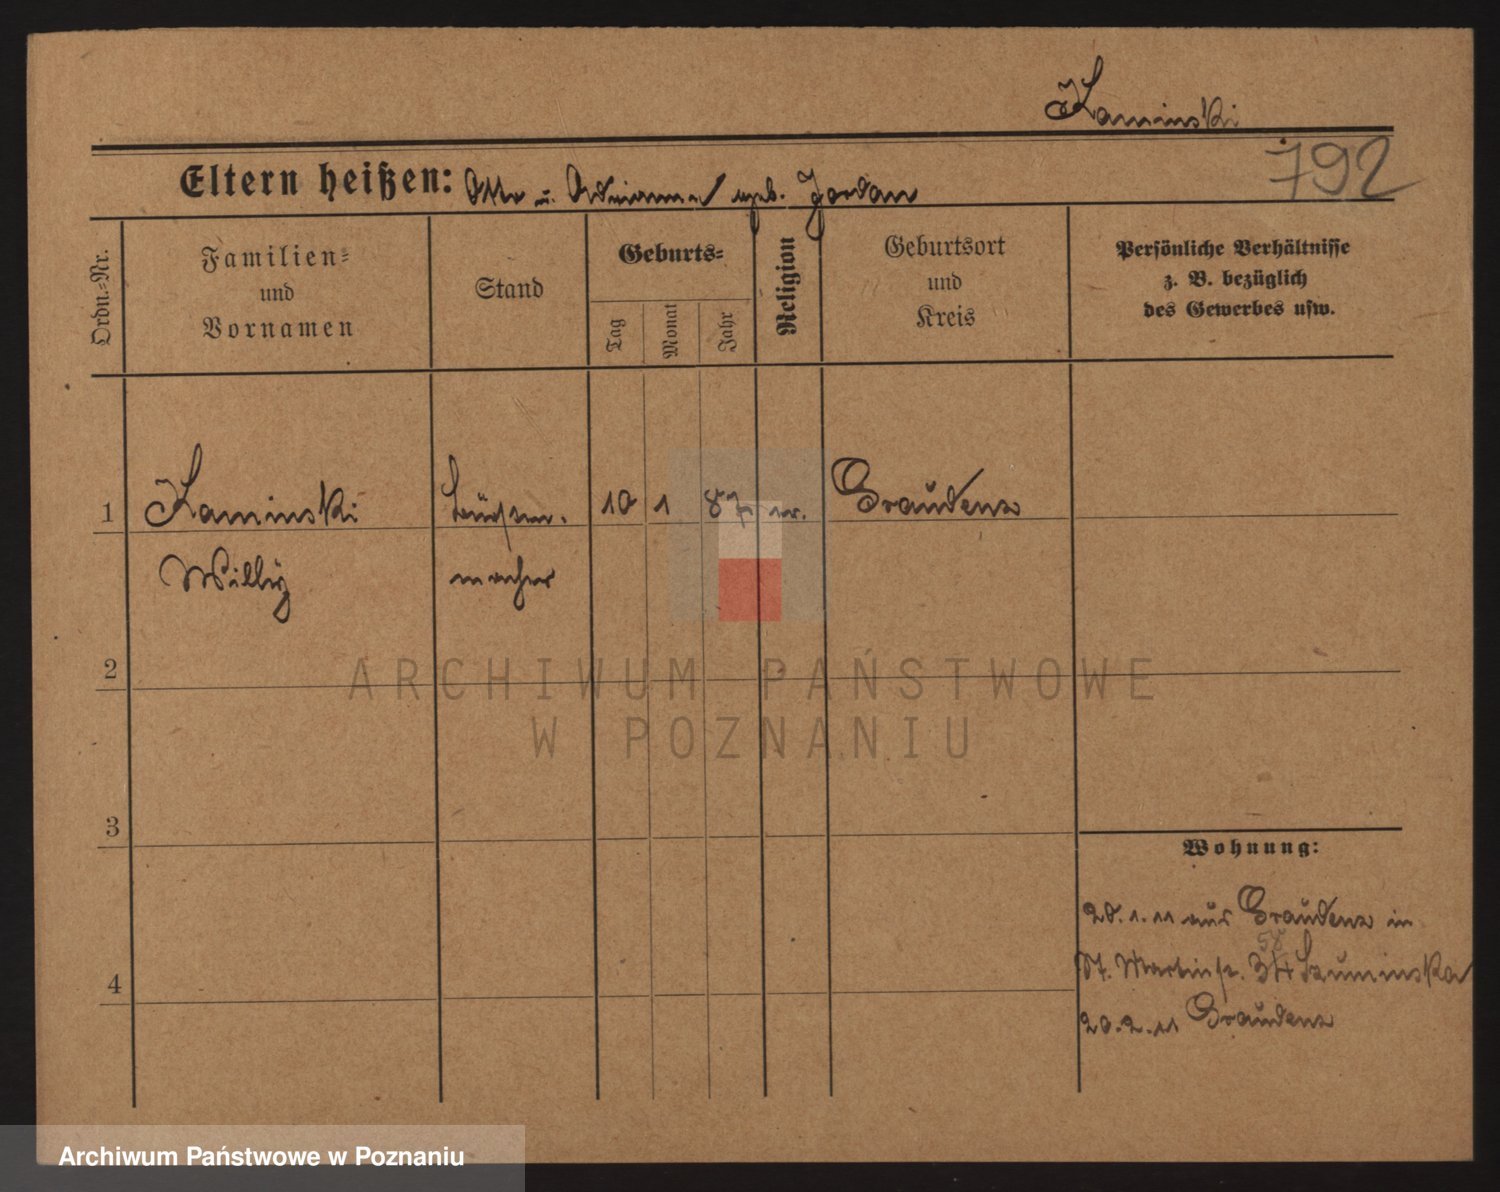 Kaminski
792
Eltern heißen: Otto u. Adrianna geb. Jordan
Ordn.-Nr.
Familien-
und
Vornamen
Stand
Geburts-
Tag
Monat
Jahr
Religion
Geburtsort
und
Kreis
Persönliche Verhältnisse
z. B. bezüglich
des Gewerbes usw.
1 Kaminski Büchsen- 10 1 87 ev. Graudenz
Willy macher
2
3
4
Wohnung:
20.1.11 aus Graudenz in
St. Martinstr. 34 Szuminska
20.2.11 Graudenz
ARCHIWUM PAŃSTWOWE
W POZNANIU
Archiwum Państwowe w Poznaniu